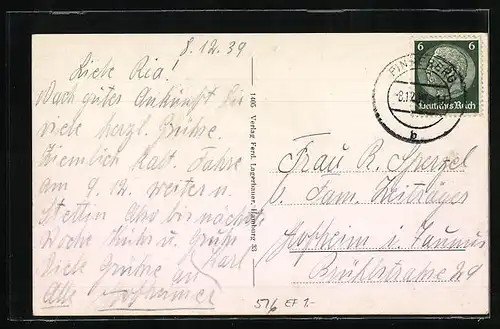 8.12.39
Liebe Ria!
Nach guter Ankunft hier
viele herzl. Grüsse.
Ziemlich kalt. Fahre
am 9.12. weiter n.
Stettin Also bis nächste
Woche u. Gruss
Viele Grüsse an Karl
Alle Hofheimer
1405 Verlag Ferd. Lagerbauer, Hamburg 23
6 6
Deutsches Reich
PINNEBERG
b
Frau R. Sperzel
b. Fam.
Hofheim i. Taunus
Brühlstrasse 29
51/6 EF 1.-